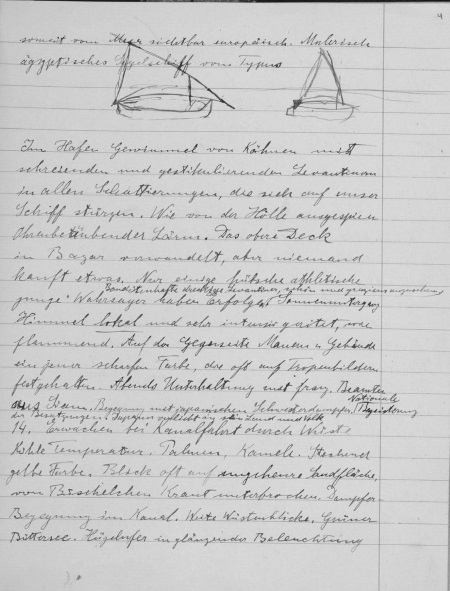 4
soweit vom Meer sichtbar europäisch. Malerisch
ägyptisches Segelschiff vom Typus
Im Hafen Gewimmel von Kähnen mit
schreienden und gestikulierenden Levantinern
in allen Schattierungen, die sich auf unser
Schiff stürzen. Wie von der Hölle ausgespien
Ohrenbetäubender Lärm. Das obere Deck
in Bazar verwandelt, aber niemand
kauft etwas. Nur einige hübsche athletische
Banditenhafte dreckige Levantiner, schön und graziös anzusehen
junge Wahrsager haben Erfolg. Sonnenuntergang
Himmel lokal und sehr intensiv gerötet, wie
flammend. Auf der Gegenseite Mauern u Gebäude
in jener scharfen Farbe, die oft auf Tropenbildern
festgehalten. Abends Unterhaltung mit franz. Beamten
aus Siam. Begegnung mit japanischem Schwesterdampfer. Nationale Begeisterung
der Japaner verliebt in ihr Land und Volk
14. Erwachen bei Kanalfahrt durch Wüste
Kühle Temperatur. Palmen, Kamele.
gelbe Farbe. Blick oft auf ungeheure Sandfläche,
von Büschelchen Kraut unterbrochen. Dampfer
Begegnung im Kanal. Weite Wüstenblicke. Grüner
Bittersee. Hügelufer in glänzender Beleuchtung